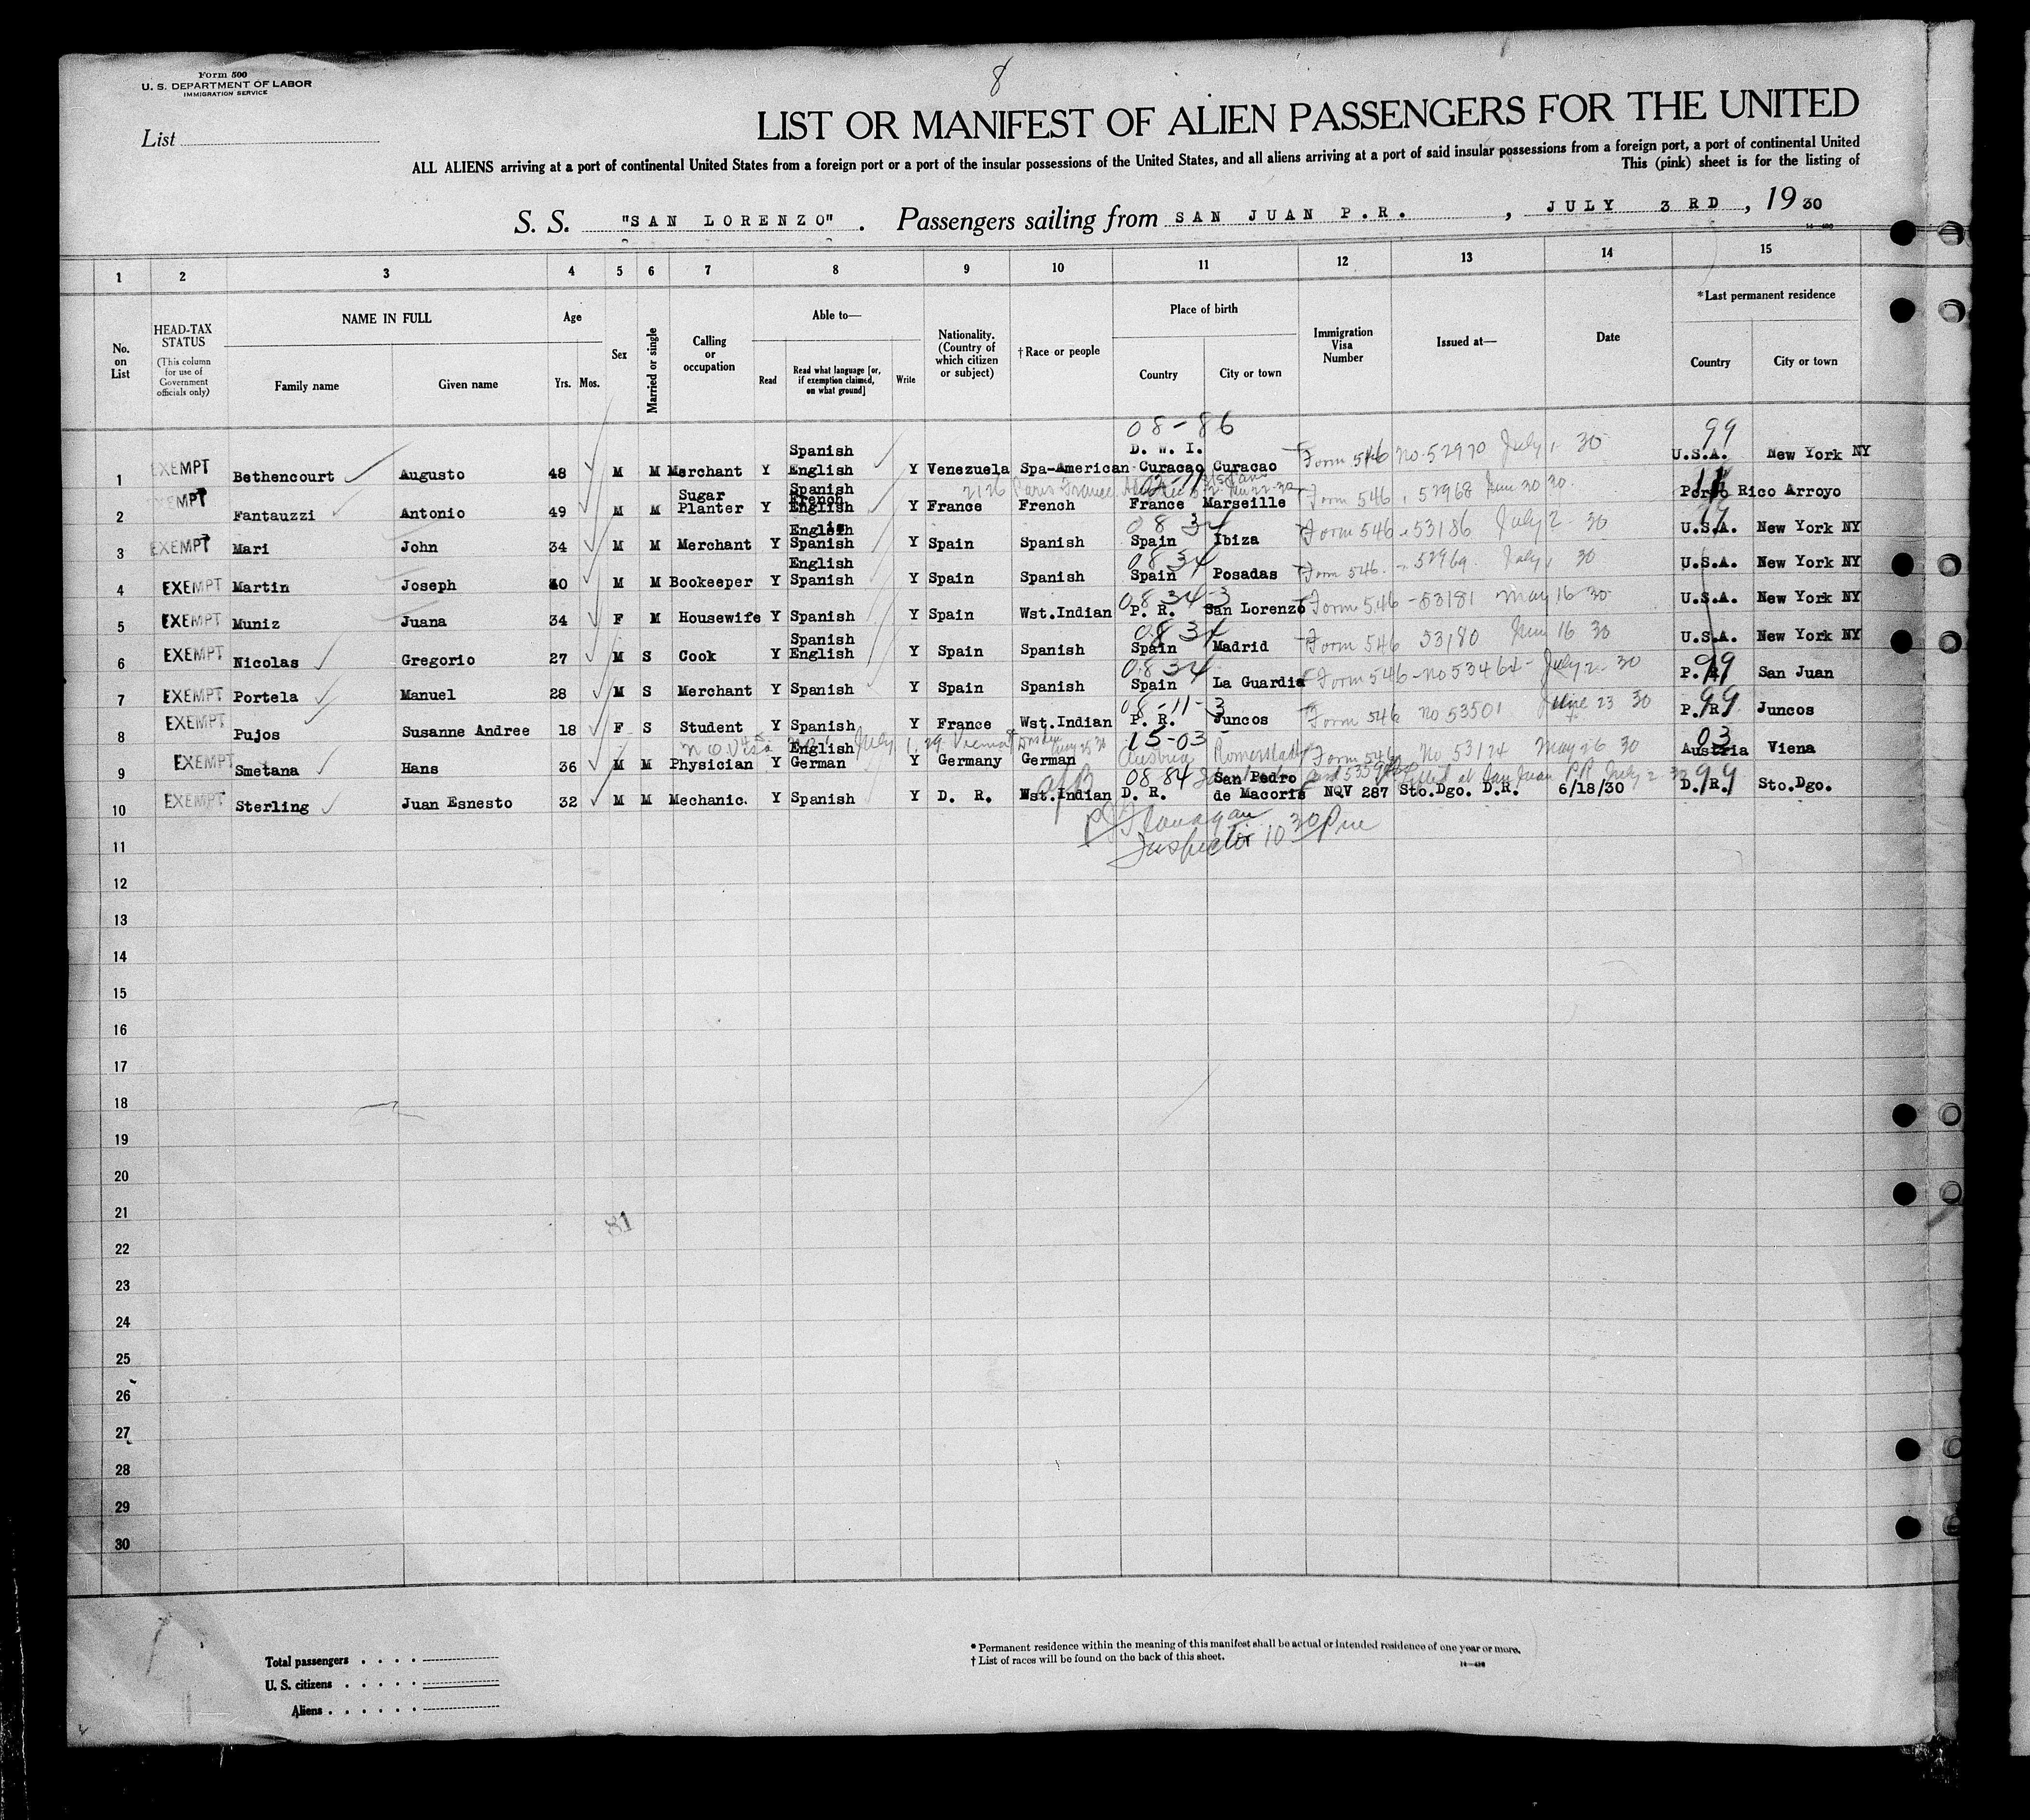 8
Form 500
U. S. DEPARTMENT OF LABOR
IMMIGRATION SERVICE
List
LIST OR MANIFEST OF ALIEN PASSENGERS FOR THE UNITED
ALL ALIENS arriving at a port of continental United States from a foreign port or a port of the insular possessions of the United States, and all aliens arriving at a port of said insular possessions from a foreign port, a port of continental United
This (pink) sheet is for the listing of
S. S. "SAN LORENZO". Passengers sailing from SAN JUAN P.R., JULY 3 RD, 19 30
1 2 3 4 5 6 7 8 9 10 11 12 13 14 15
No. on List
HEAD-TAX STATUS
(This column for use of Government officials only)
NAME IN FULL
Family name Given name
Age
Yrs. Mos.
Sex
Married or single
Calling or occupation
Able to—
Read
Read what language [or, if exemption claimed, on what ground]
Write
Nationality. (Country of which citizen or subject)
† Race or people
Place of birth
Country City or town
Immigration Visa Number
Issued at—
Date
*Last permanent residence
Country City or town
08-86 99
1 EXEMPT Bethencourt Augusto 48 M M Merchant Y Spanish English Y Venezuela Spa-American D. W. I. Curacao Curacao Form 546 No. 52970 July 1 30 U.S.A. New York NY
2 EXEMPT Fantauzzi Antonio 49 M M Sugar Planter Y Spanish French English Y France French France Marseille Form 546 52968 Jun 30 30 Porto Rico Arroyo
3 EXEMPT Mari John 34 M M Merchant Y English Spanish Y Spain Spanish 08 34 Spain Ibiza Form 546 53186 July 2 30 U.S.A. New York NY
4 EXEMPT Martin Joseph 40 M M Bookeeper Y English Spanish Y Spain Spanish 08 34 Spain Posadas Form 546 52969 July 1 30 U.S.A. New York NY
5 EXEMPT Muniz Juana 34 F M Housewife Y Spanish Y Spain Wst.Indian 08 34-3 P. R. San Lorenzo Form 546 - 53181 May 16 30 U.S.A. New York NY
6 EXEMPT Nicolas Gregorio 27 M S Cook Y Spanish English Y Spain Spanish 08 34 Spain Madrid Form 546 53180 Jun 16 30 U.S.A. New York NY
7 EXEMPT Portela Manuel 28 M S Merchant Y Spanish Y Spain Spanish 08 34 Spain La Guardia Form 546 - No 53464 - July 2 30 P. R. 99 San Juan
8 EXEMPT Pujos Susanne Andree 18 F S Student Y Spanish English Y France Wst.Indian 08-11-3 P. R. Juncos Form 546 No 53501 June 23 30 P. R. 99 Juncos
9 EXEMPT Smetana Hans 36 M M Physician Y German Y Germany German 15-03 Austria Form 546 No 53124 May 26 30 03 Austria Viena
10 EXEMPT Sterling Juan Esnesto 32 M M Mechanic. Y Spanish Y D. R. Wst.Indian 08 84 D. R. San Pedro de Macoris NQV 287 Sto.Dgo. D.R. 6/18/30 D. R. 99 Sto.Dgo.
Flanagan
Inspector 10 30 Pm
11
12
13
14
15
16
17
18
19
20
21
81
22
23
24
25
26
27
28
29
30
Total passengers
U. S. citizens
Aliens
* Permanent residence within the meaning of this manifest shall be actual or intended residence of one year or more.
† List of races will be found on the back of this sheet.